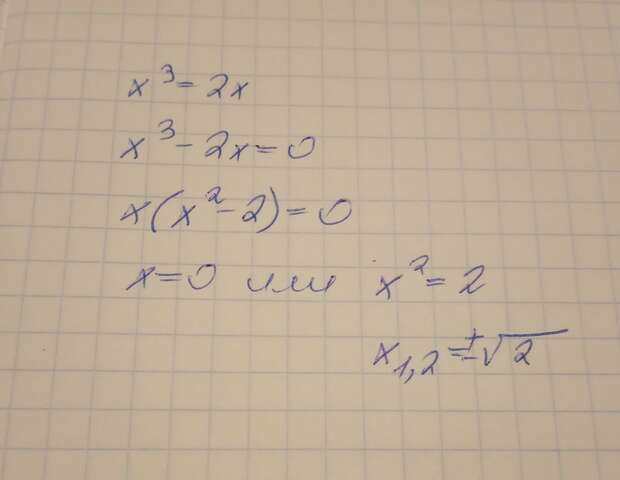 x³ = 2x
x³ - 2x = 0
x(x² - 2) = 0
x = 0 или x² = 2
x₁,₂ = ±√2